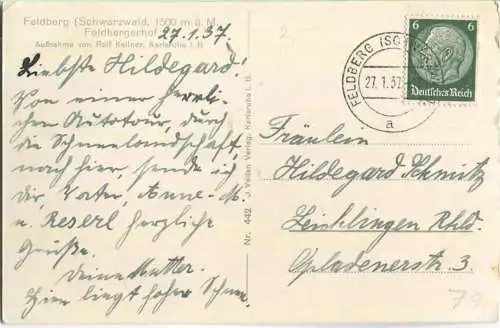 Feldberg (Schwarzwald, 1500 m ü. M.
Feldbergerhof
Aufnahme von Rolf Kellner, Karlsruhe i. B
27.1.37.
Liebste Hildegard!
Von einer herrli-
chen Autotour, durch
die Schneelandschaft,
nach hier, sende ich
dir, Vater, Anne-M.
u. Reserl herzliche
Grüße.
Deine Mutter.
Hier liegt hoher Schnee.
Nr. 442 J. Velten Verlag, Karlsruhe i. B.
2.-
FELDBERG (SCHWARZW
27.1.37
a
6
6
Deutsches Reich
Fräulein
Hildegard Schmitz
Leichlingen Rhld.
Opladenerstr. 3.